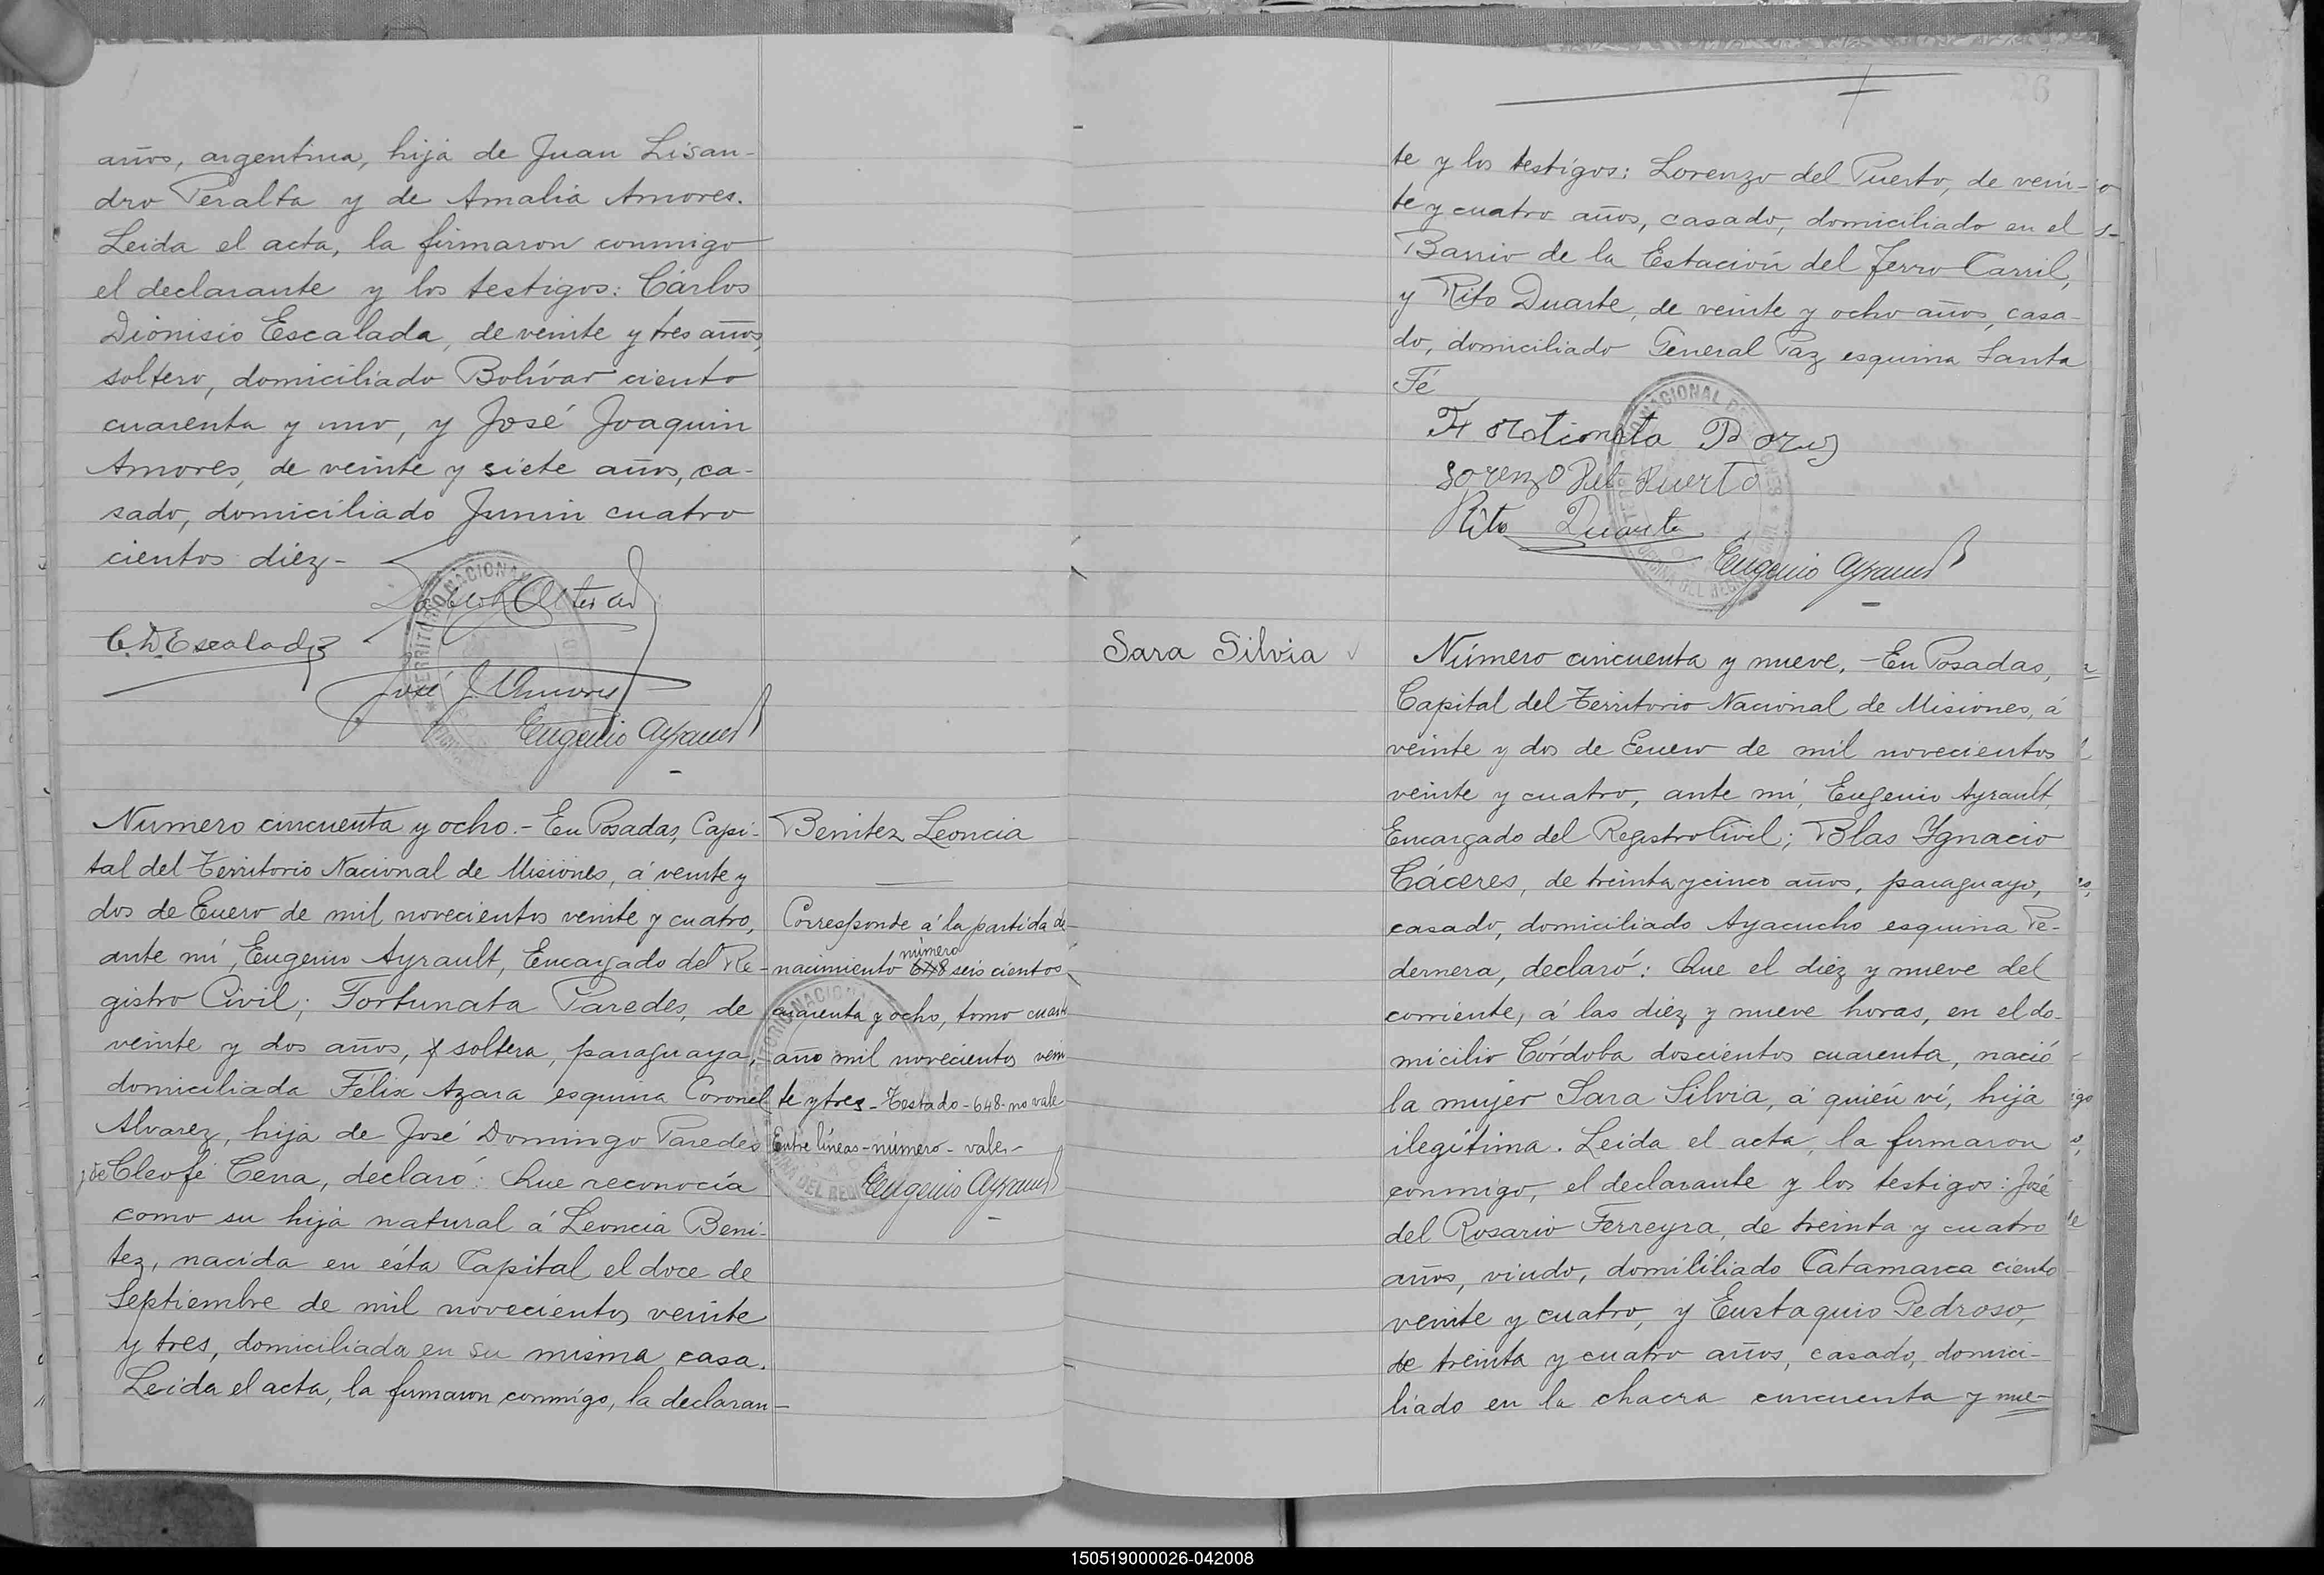 años, argentina, hija de Juan Lisan-
dro Peralta y de Amalia Amores.
Leida el acta, la firmaron conmigo
el declarante y los testigos: Cárlos
Dionisio Escalada, de veinte y tres años,
soltero, domiciliado Bolívar ciento
cuarenta y uno, y José Joaquin
Amores, de veinte y siete años, ca-
sado, domiciliado Junin cuatro
cientos diez-
C. D. Escalada
José J. Amores
Eugenio Ayrault
Número cincuenta y ocho.- En Posadas, Capi-
tal del Territorio Nacional de Misiones, á veinte y
dos de Enero de mil novecientos veinte y cuatro,
ante mí, Eugenio Ayrault, Encargado del Re-
gistro Civil; Fortunata Paredes, de
veinte y dos años, soltera, paraguaya,
domiciliada Félix Azara esquina Coronel
Alvarez, hija de José Domingo Paredes
y de Cleofé Cena, declaró: Que reconocía
como su hija natural á Leoncia Beni-
tez, nacida en ésta Capital el doce de
Septiembre de mil novecientos veinte
y tres, domiciliada en su misma casa.
Leida el acta, la firmaron conmigo, la declaran-
Benitez Leoncia
Corresponde á la partida de
número
nacimiento 648 seis cientos
cuarenta y ocho, tomo cuarto
año mil novecientos vein
te y tres - Testado - 648 - no vale
Entre líneas - número - vale.-
Eugenio Ayrault
26
te y los testigos: Lorenzo del Puerto, de vein-
te y cuatro años, casado, domiciliado en el
Barrio de la Estación del Ferro Carril,
y Rito Duarte, de veinte y ocho años, casa-
do, domiciliado General Paz esquina Santa
Fé
Lorenzo Del Puerto
Rito Duarte
Eugenio Ayrault
Sara Silvia
Número cincuenta y nueve. - En Posadas,
Capital del Territorio Nacional de Misiones, á
veinte y dos de Enero de mil novecientos
veinte y cuatro, ante mí, Eugenio Ayrault,
Encargado del Registro Civil; Blas Ygnacio
Cáceres, de treinta y cinco años, paraguayo,
casado, domiciliado Ayacucho esquina Pe-
dernera, declaró: Que el diez y nueve del
corriente, á las diez y nueve horas, en el do-
micilio Córdoba doscientos cuarenta, nació
la mujer Sara Silvia, á quién ví, hija
ilegítima. Leida el acta, la firmaron
conmigo, el declarante y los testigos: José
del Rosario Ferreyra, de treinta y cuatro
años, viudo, domililiado Catamarca ciento
veinte y cuatro, y Eustaquio Pedroso,
de treinta y cuatro años, casado, domici-
liado en la chacra cincuenta y nue-
150519000026-042008